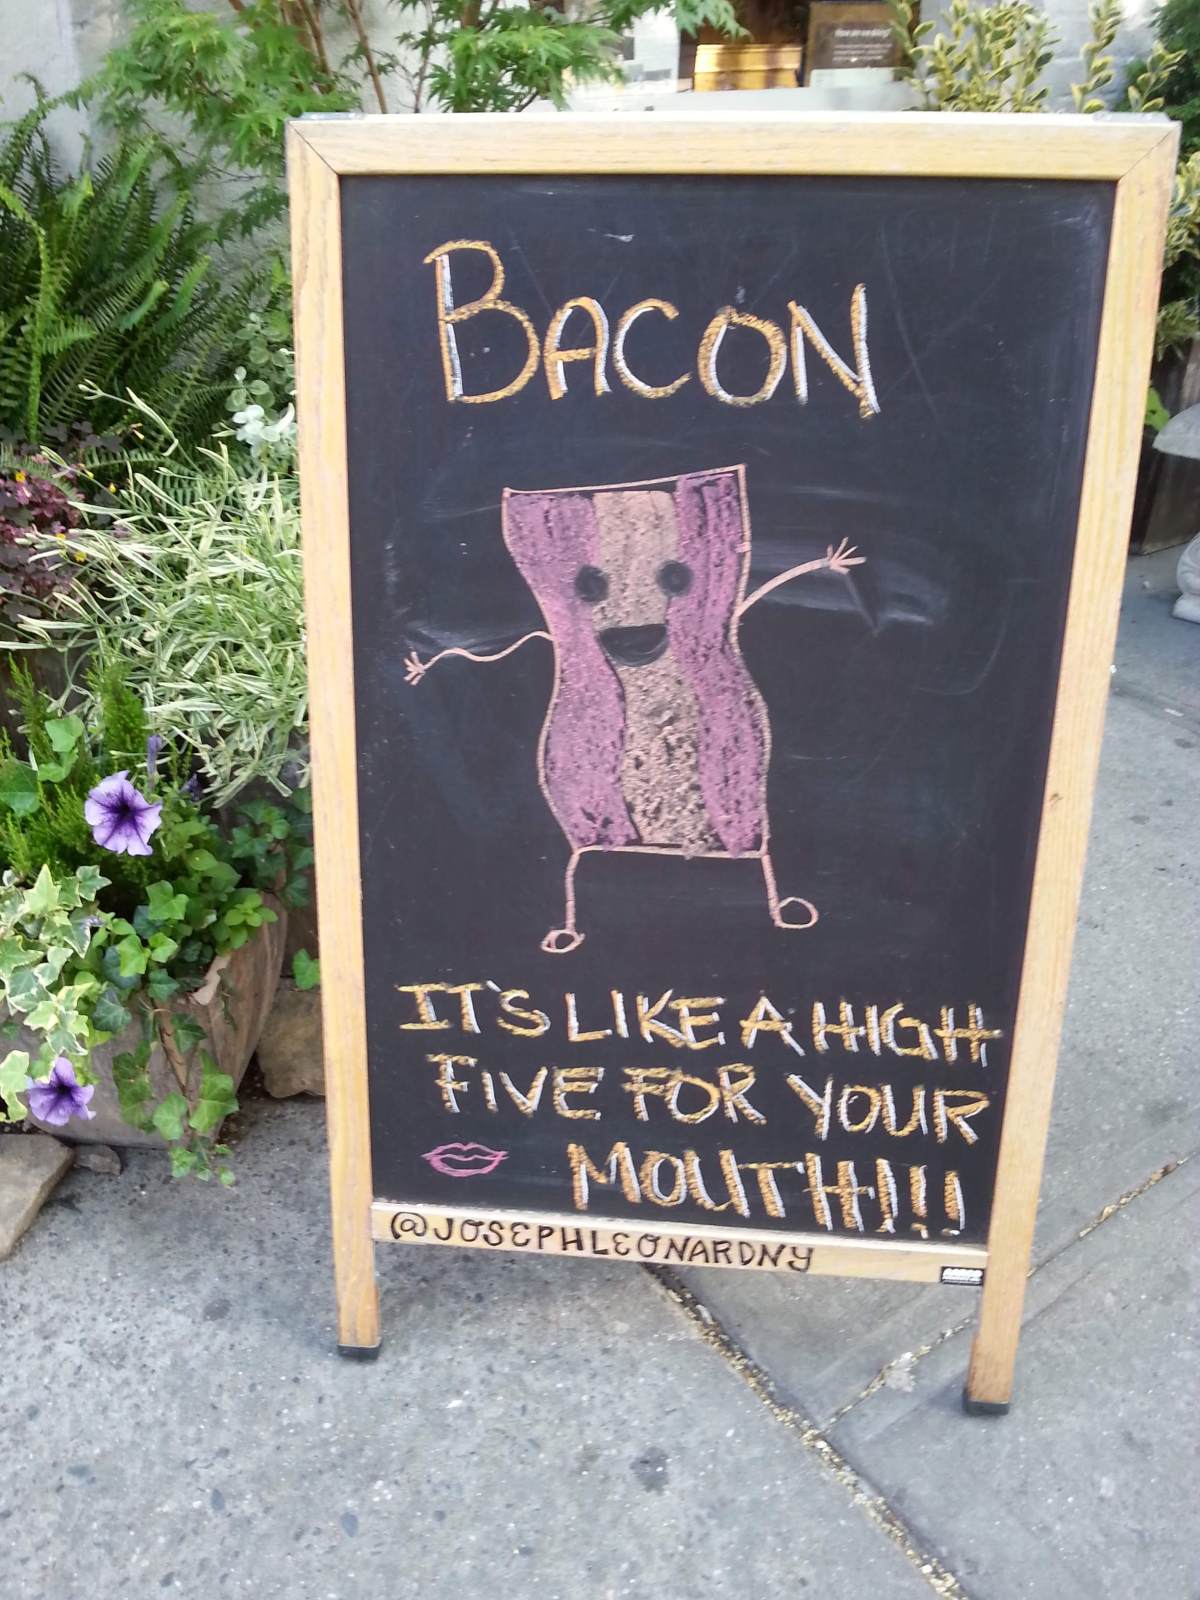 BACON
IT'S LIKE A HIGH
FIVE FOR YOUR
MOUTH!!!
@JOSEPHLEONARDNY